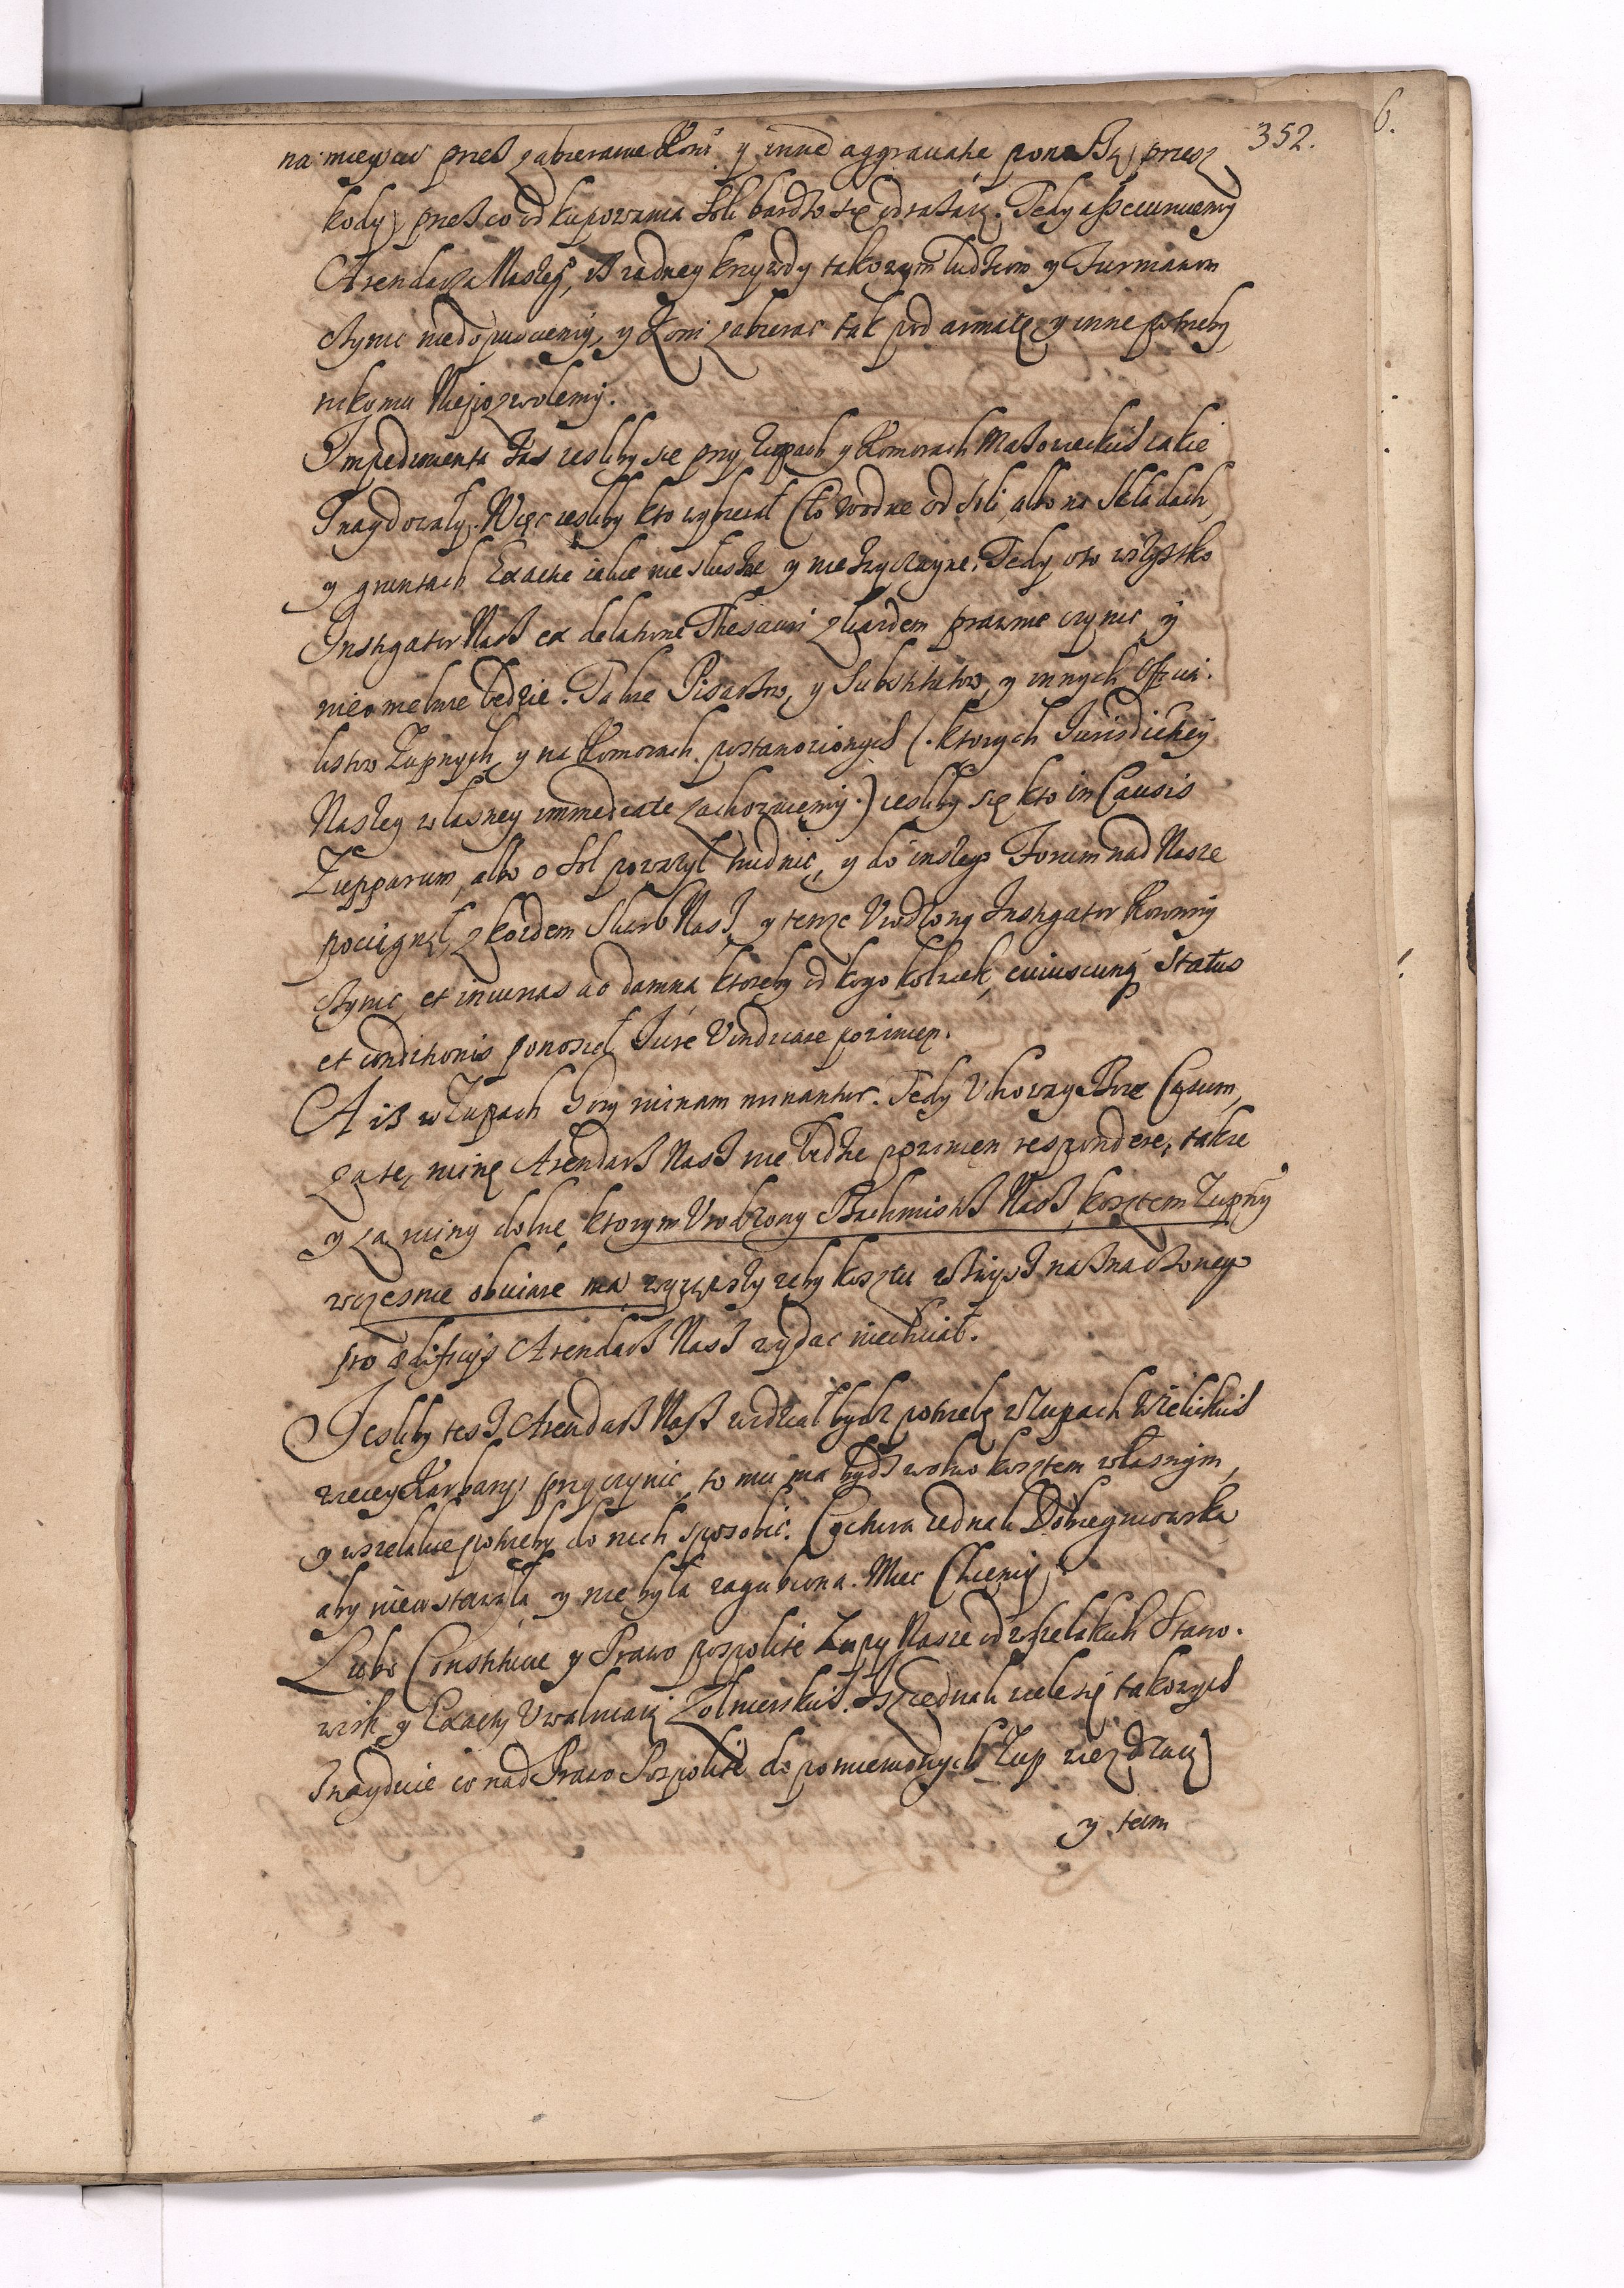 352.
6.
na mieyscu przeß zabieranie Koni y inne aggrauatie ponoßą, przesz
kody, przeß co od kupowania Soli bardzo się odrażaią. Tedy assecuruiemy
Arendarza Naszego, iż żadney krzywdy takowym ludziom y Furmanom
czynic niedopuściemy, y Koni zabierac tak pod armatę y inne potrzeby
nikomu Niepozwolemy.
Impedimenta zas iesliby się przy Zupach y Komorach Mazowieckich iakie
Znaydowały. Więc iesliby kto wybierał Cło wodne od Soli, albo na Składach,
y gruntach Exactie iakie niesłuszne y niezwyczayne, Tedy oto wszystko
Instigator Naß ex delatione Thesauri z każdem prawnie czynic y
nieomelnie będzie. Także Pisarzow, y Substitutow, y innych Officia-
listow Zupnych, y na Komorach postanowionych (. ktorych Iurisdictiey
Naszey własney immediate zachowuiemy .) iesliby się kto in Causis
Zupparum, albo o Sol powazył trudnic, y do inszego Forum nad Nasze
pociągnął, z kazdem Skarb Nasz, y tenże Urodzony Instigator Koronny
czynic, et iniurias ac damna ktoreby od kogo kolwiek, cuiuscunq Status
et conditionis ponosił Iure Vindicare powinien.
A iß w Zupach Gory ruinam minantur. Tedy Uchoway Boże Casum,
za te, ruinę Arendarß Nasz nie będzie powinien respondere, także
y za ruiny dolne, ktorym Urodzony Bachmistrß Naß, kosztem Zupnym
wczesnie obuiare ma, wyiąwszy żeby kosztu
pro aedificijs Arendarß Nasz wydac niechciał.
Iesliby tesz Arendarß Naß widział bydz potrzebę w Zupach Wielickich
wiecey Karbary przyczynic, to mu ma bydz wolno kosztem własnym,
y wszelakie potrzeby do nich sposobic. Cochtura iednak Dobiegniowska
aby nieustawała y nie była zagubiona. Miec Chcemy.
Lubo Constitucie y Prawo pospolite Zupy Nasze od wszelakich Stano-
wisk y Exactij Uwalniaią Zołnierskich. Isz iednak wiele się takowych
Znayduie co nad Prawo Pospolite do pomienionych Zup wiezdzaią
y tam